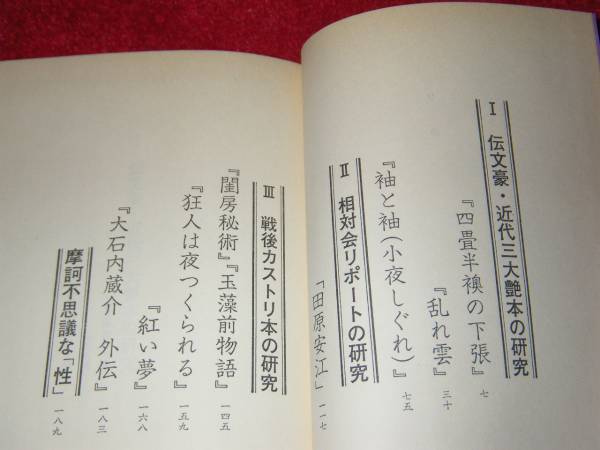 Ⅰ 伝文豪・近代三大艶本の研究
『四畳半襖の下張』 七
『乱れ雲』 三十
『袖と袖(小夜しぐれ)』 七五
Ⅱ 相対会リポートの研究
「田原安江」 一一七
Ⅲ 戦後カストリ本の研究
『閨房秘術』『玉藻前物語』 一四五
『狂人は夜つくられる』 一五九
『紅い夢』 一六八
『大石内蔵介 外伝』 一八三
摩訶不思議な「性」 一八九